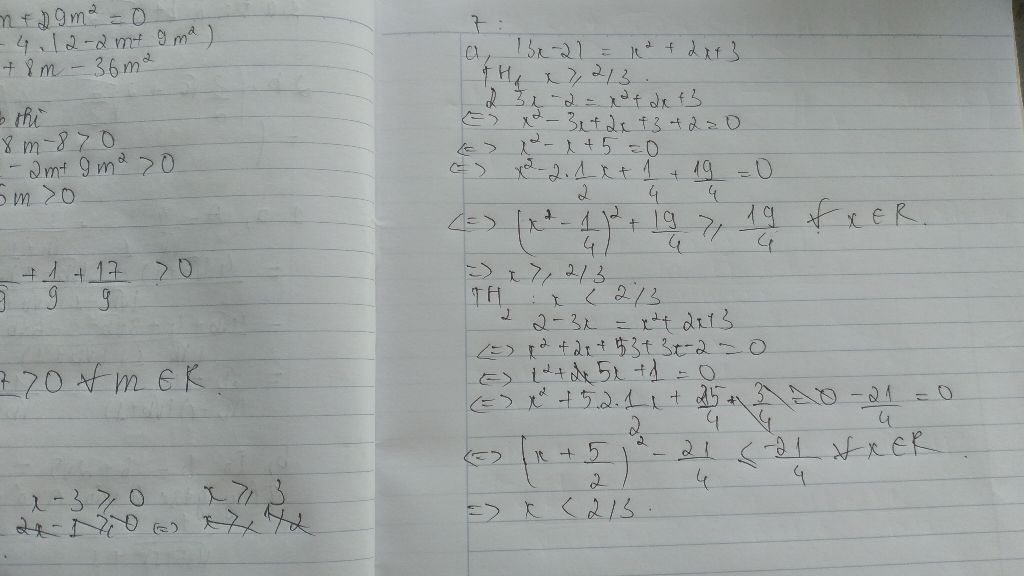 m + 29m² = 0
- 4.(2-2m+9m²)
+ 8m - 36m²
thì
8m-8>0
- 2m+9m²>0
m>0
+ 1/9 + 17/9 >0
>0 ∀m∈R.
x-3⩾0 x⩾3
2x-1⩾0 <=> x⩾1/2
7:
a, |3x-2| = x² + 2x+3
TH1 x⩾2/3.
3x-2 = x²+2x+3
<=> x²-3x+2x+3+2=0
<=> x²-x+5=0
<=> x²-2.1/2x+1/4+19/4=0
<=> (x²-1/4)²+19/4⩾19/4 ∀x∈R.
=> x⩾2/3
TH2: x<2/3
2-3x = x²+2x+3
<=> x²+2x+3+3x-2=0
<=> x²+5x+1=0
<=> x²+5.2.1/2x+25/4+3/4=0-21/4=0
<=> (x+5/2)²-21/4⩽-21/4 ∀x∈R.
=> x<2/3.